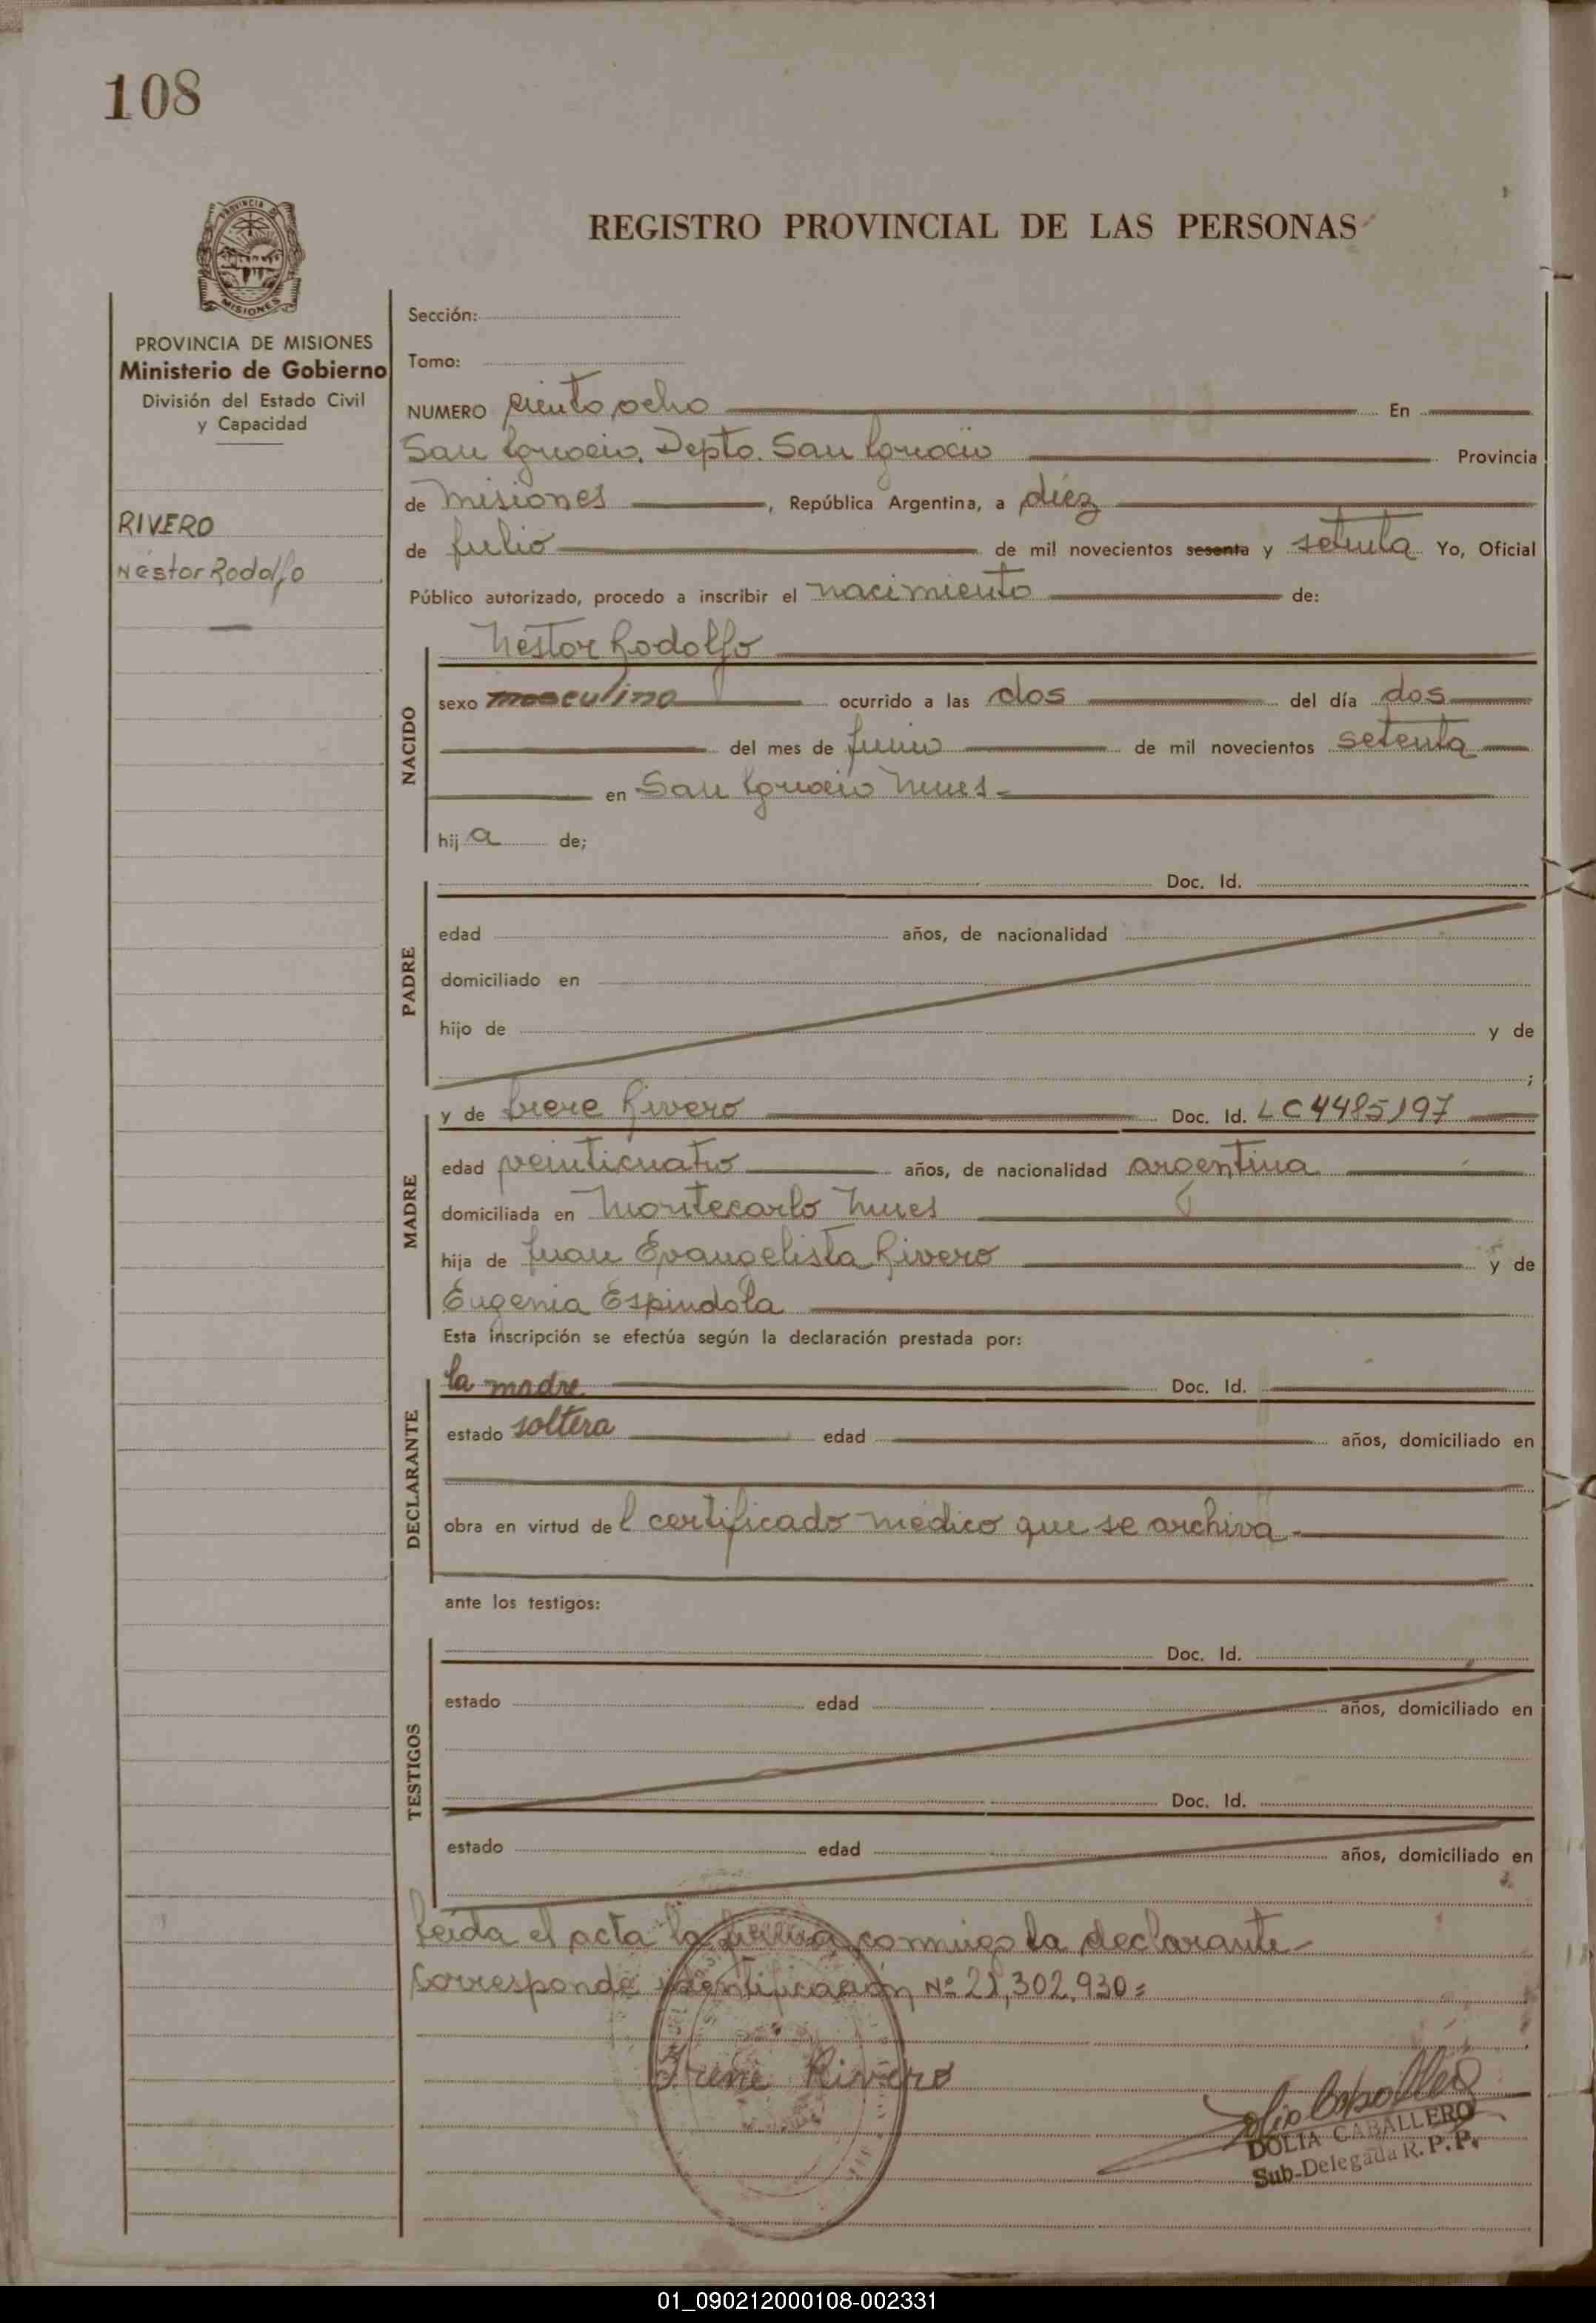 108
PROVINCIA DE
MISIONES
REGISTRO PROVINCIAL DE LAS PERSONAS
PROVINCIA DE MISIONES
Ministerio de Gobierno
División del Estado Civil
y Capacidad
RIVERO
Néstor Rodolfo
Sección:
Tomo:
NUMERO ciento ocho En
San Ignacio. Depto. San Ignacio Provincia
de misiones, República Argentina, a diez
de julio de mil novecientos sesenta y setenta Yo, Oficial
Público autorizado, procedo a inscribir el nacimiento de:
Néstor Rodolfo
NACIDO
sexo masculino ocurrido a las dos del día dos
del mes de junio de mil novecientos setenta
en San Ignacio Mnes-
hij a de;
PADRE
Doc. Id.
edad años, de nacionalidad
domiciliado en
hijo de y de
;
MADRE
y de Irene Rivero Doc. Id. LC 4485197
edad veinticuatro años, de nacionalidad argentina
domiciliada en Montecarlo Mnes
hija de Juan Evangelista Rivero y de
Eugenia Espindola
Esta inscripción se efectúa según la declaración prestada por:
DECLARANTE
la madre Doc. Id.
estado soltera edad años, domiciliado en
obra en virtud del certificado médico que se archiva-
ante los testigos:
TESTIGOS
Doc. Id.
estado edad años, domiciliado en
Doc. Id.
estado edad años, domiciliado en
Leída el acta la firma conmigo la declarante-
Corresponde identificación Nº 21,302.930=
Irene Rivero
DOLIA CABALLERO
Sub-Delegada R. P. P.
01_090212000108-002331